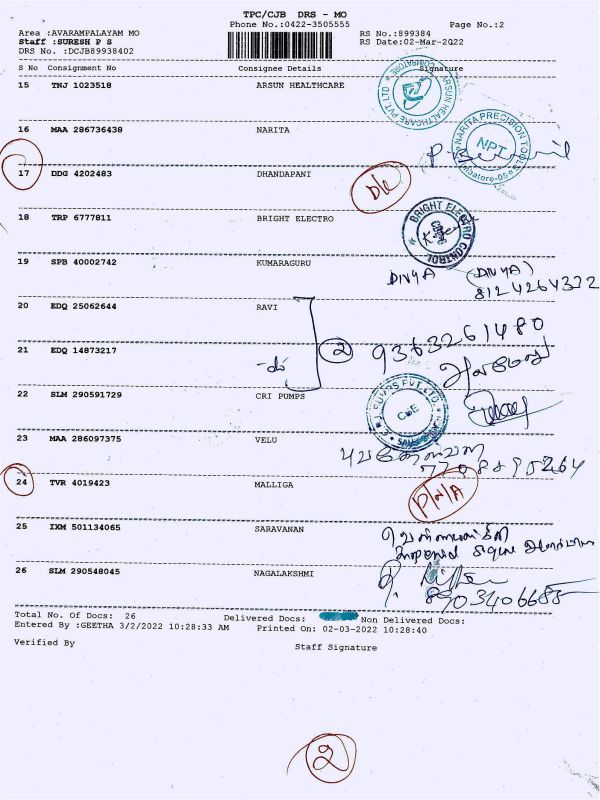 TPC/CJB DRS - MO
Phone No.:0422-3505555 Page No.:2
Area :AVARAMPALAYAM MO RS No.:899384
Staff :SURESH P S RS Date:02-Mar-2022
DRS No. :DCJB89938402
S No Consignment No Consignee Details Signature
15 TNJ 1023518 ARSUN HEALTHCARE
ARSUN HEALTHCARE PVT LTD COIMBATORE
16 MAA 286736438 NARITA
NARITA PRECISION TOOLS
NPT
17 DDG 4202483 DHANDAPANI
D/L
18 TRP 6777811 BRIGHT ELECTRO
BRIGHT ELECTRO CONTROL
19 SPB 40002742 KUMARAGURU
DIVYA (DIVYA)
8124264332
20 EDQ 25062644 RAVI
2 9363261480
21 EDQ 14873217
22 SLM 290591729 CRI PUMPS
PUMPS PVT LTD
23 MAA 286097375 VELU
24 TVR 4019423 MALLIGA
P/N/A
25 IXM 501134065 SARAVANAN
26 SLM 290548045 NAGALAKSHMI
8903406685
Total No. Of Docs: 26 Delivered Docs: Non Delivered Docs:
Entered By :GEETHA 3/2/2022 10:28:33 AM Printed On: 02-03-2022 10:28:40
Verified By Staff Signature
2